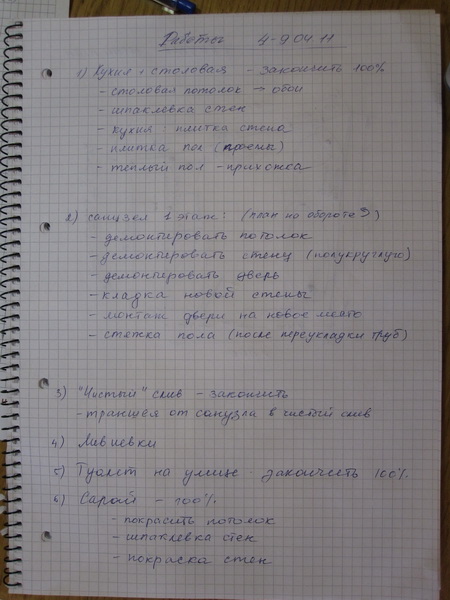 Работы 4-9 04 11
1) Кухня + столовая - закончить 100%
- столовая потолок → обои
- шпаклевка стен
- кухня: плитка стена
- плитка пол (проемы)
- теплый пол - прихожка
2) санузел 1 этаж: (план на обороте)
- демонтировать потолок
- демонтировать стену (полукруглую)
- демонтировать дверь
- кладка новой стены
- монтаж двери на новое место
- стяжка пола (после переукладки труб)
3) "Чистый" слив - закончить
- траншея от санузла в чистый слив
4) Ливневки
5) Туалет на улице - закончить 100%
6) Сарай - 100%
- покрасить потолок
- шпаклевка стен
- покраска стен